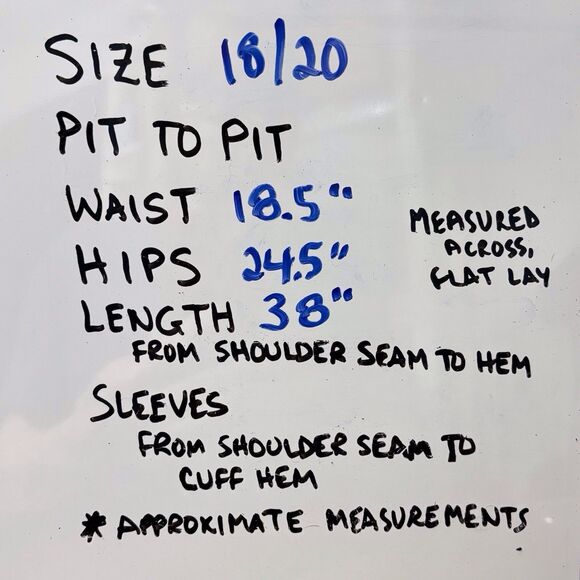 SIZE 18/20
PIT TO PIT
WAIST 18.5"
HIPS 24.5"
MEASURED
ACROSS,
FLAT LAY
LENGTH 38"
FROM SHOULDER SEAM TO HEM
SLEEVES
FROM SHOULDER SEAM TO
CUFF HEM
* APPROXIMATE MEASUREMENTS